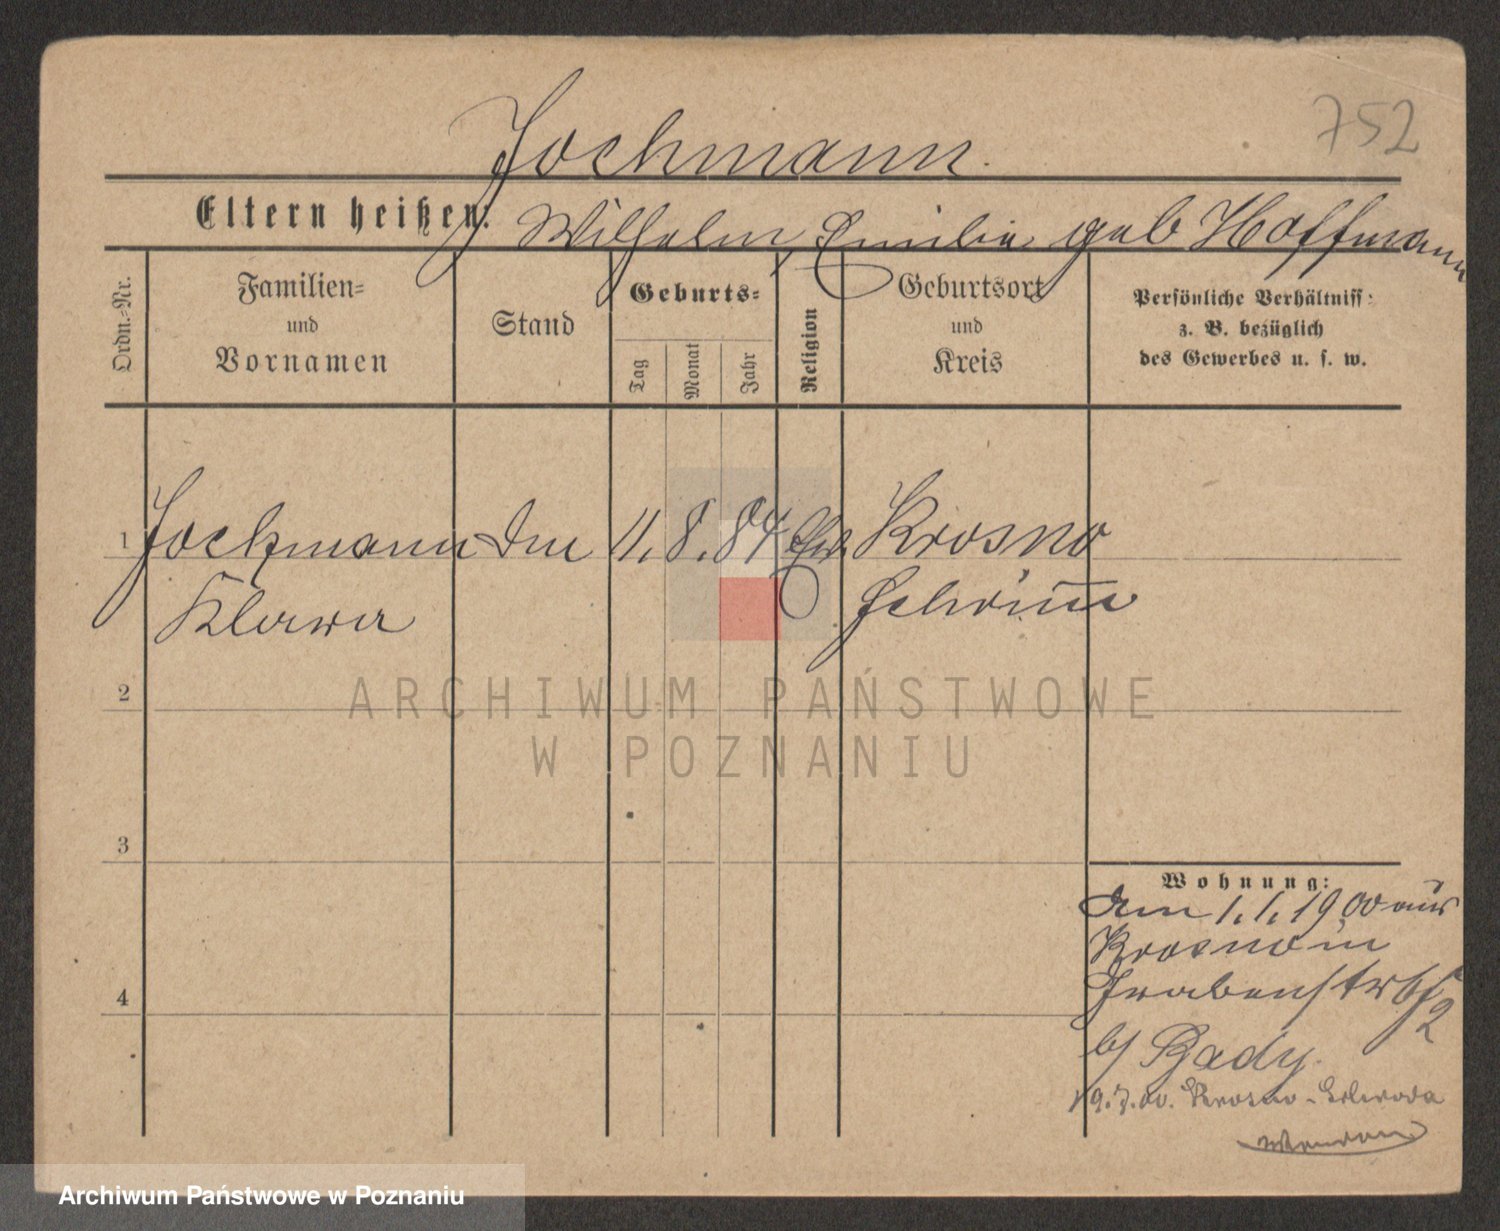 752
Jochmann.
Eltern heißen: Wilhelm, Emilie geb Hoffmann
Ordn.-Nr.
Familien- und Vornamen
Stand
Geburts-
Tag
Monat
Jahr
Religion
Geburtsort und Kreis
Persönliche Verhältniss: z. B. bezüglich des Gewerbes u. s. w.
1 Jochmann 11. 8. 84 Krosno
Klara Schrimm
2
ARCHIWUM PAŃSTWOWE
W POZNANIU
3
4
Wohnung:
den 1. 1. 1900 aus
Krosno in
Grabenstr
2
b/ Bady.
Krosno -
Archiwum Państwowe w Poznaniu